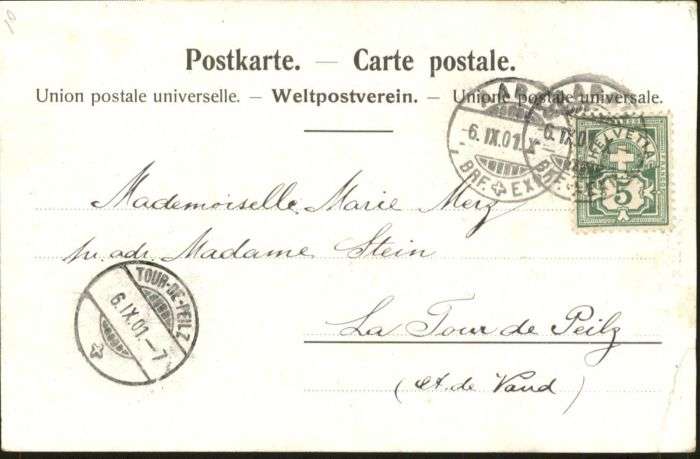 Postkarte. — Carte postale.
Union postale universelle. — Weltpostverein. — Unione postale universale.
6.IX.01.X
BRF. EXP
6.IX.01.X
HELVETIA
5
Mademoiselle Marie Merz
pr. adr. Madame Stein
TOUR-DE-PEILZ
6.IX.01.-7
La Tour de Peilz
(Ct. de Vaud)